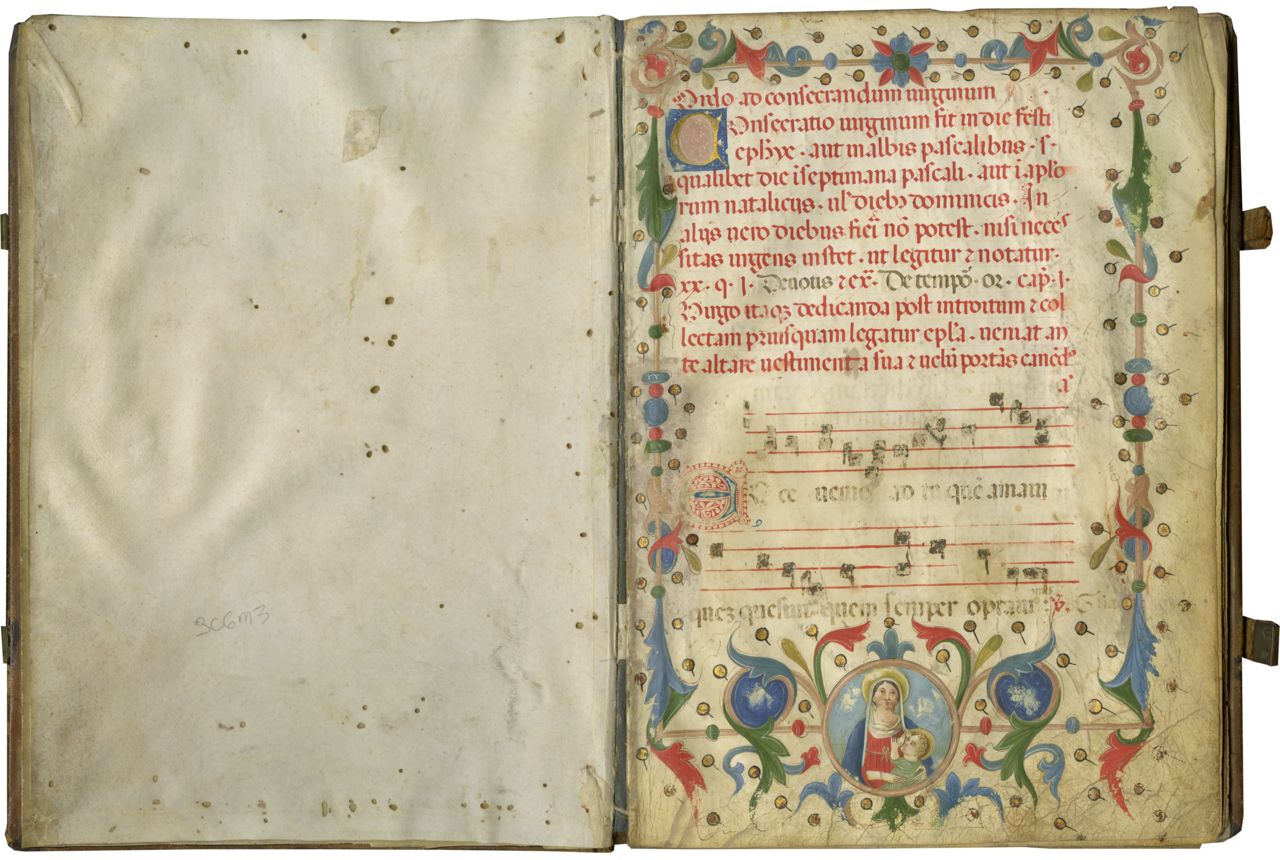 3C6M3
Ordo ad consecrandum uirginum
Consecratio uirginum fit in die festi
ephye · aut in albis pascalibus · s·
qualibet die i septimana pascali · aut i aplo
rum natalicijs · ul' dieb3 dominicis · In
alijs uero diebus fieri nō potest · nisi neces
sitas urgens instet · ut legitur ⁊ notatur·
xx · q · j · Deuotis ⁊ ex̄· De tempō · or · cap̄ · j·
Uirgo itaq3 dedicanda post introitum ⁊ col
lectam priusquam legatur epl'a · ueniat an
te altare uestimenta sua ⁊ uelū portās
a
Ecce uenio ad te quē amaui
quem semper optaui